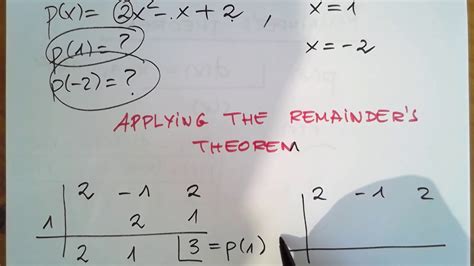 p(x) = 2x² - x + 2 , x = 1
p(1) = ? x = -2
p(-2) = ?
APPLYING THE REMAINDER'S
THEOREM
2 -1 2 2 -1 2
1 2 1
2 1 3 = p(1)